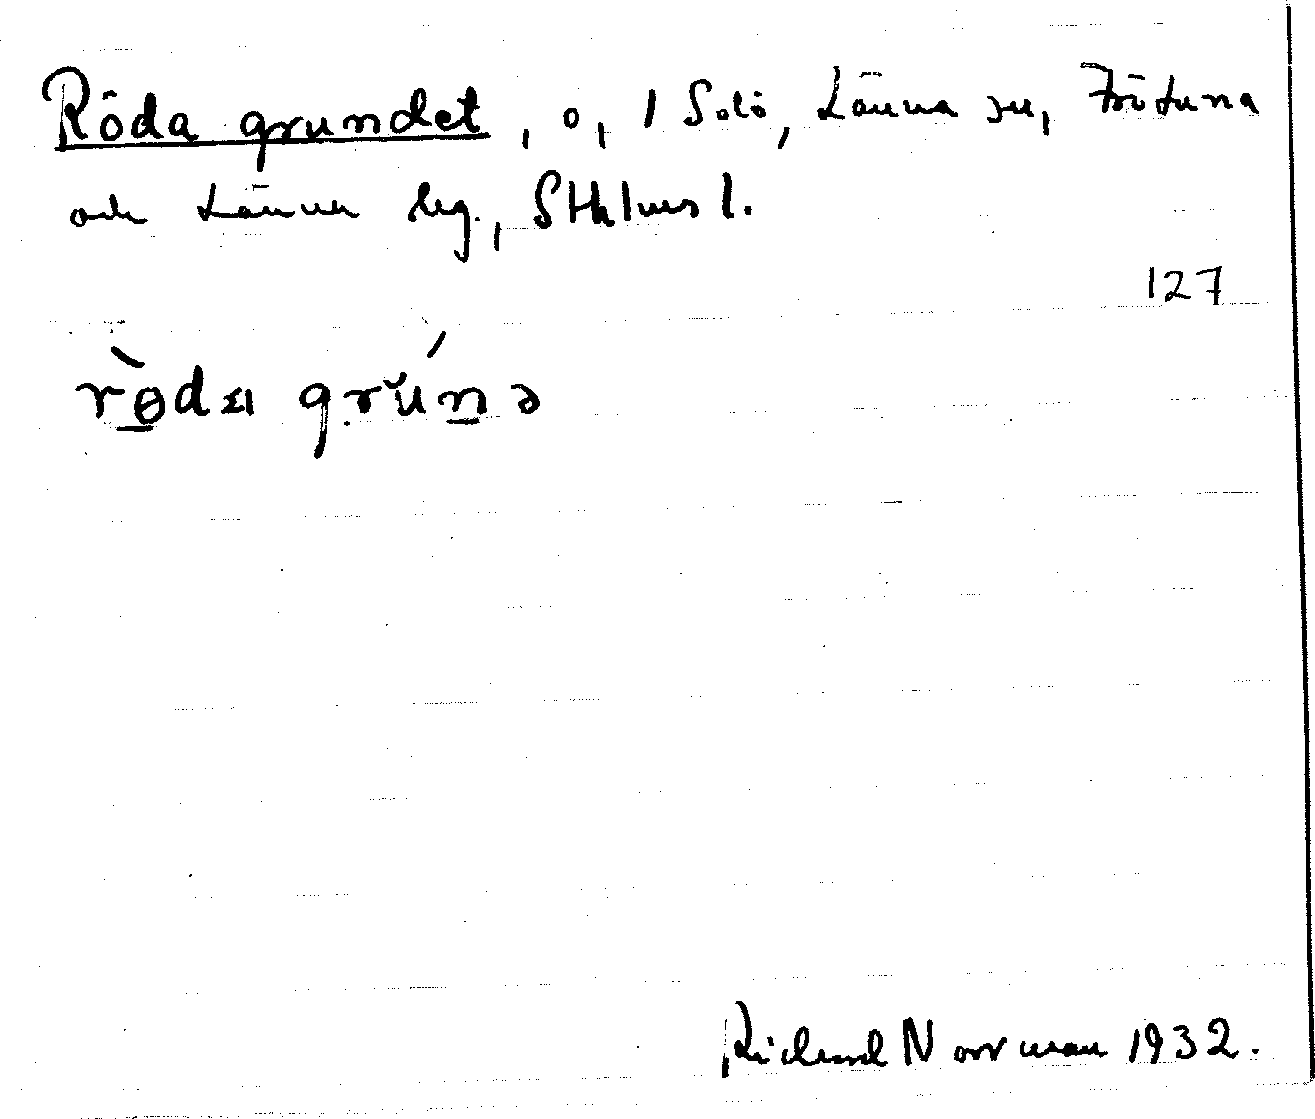 Röda grundet, ö, 1 Solö, Länna sn, Frötuna
och Länna skg., Sthlms l.
127
rö̀da grúnə
Richard Norrman 1932.